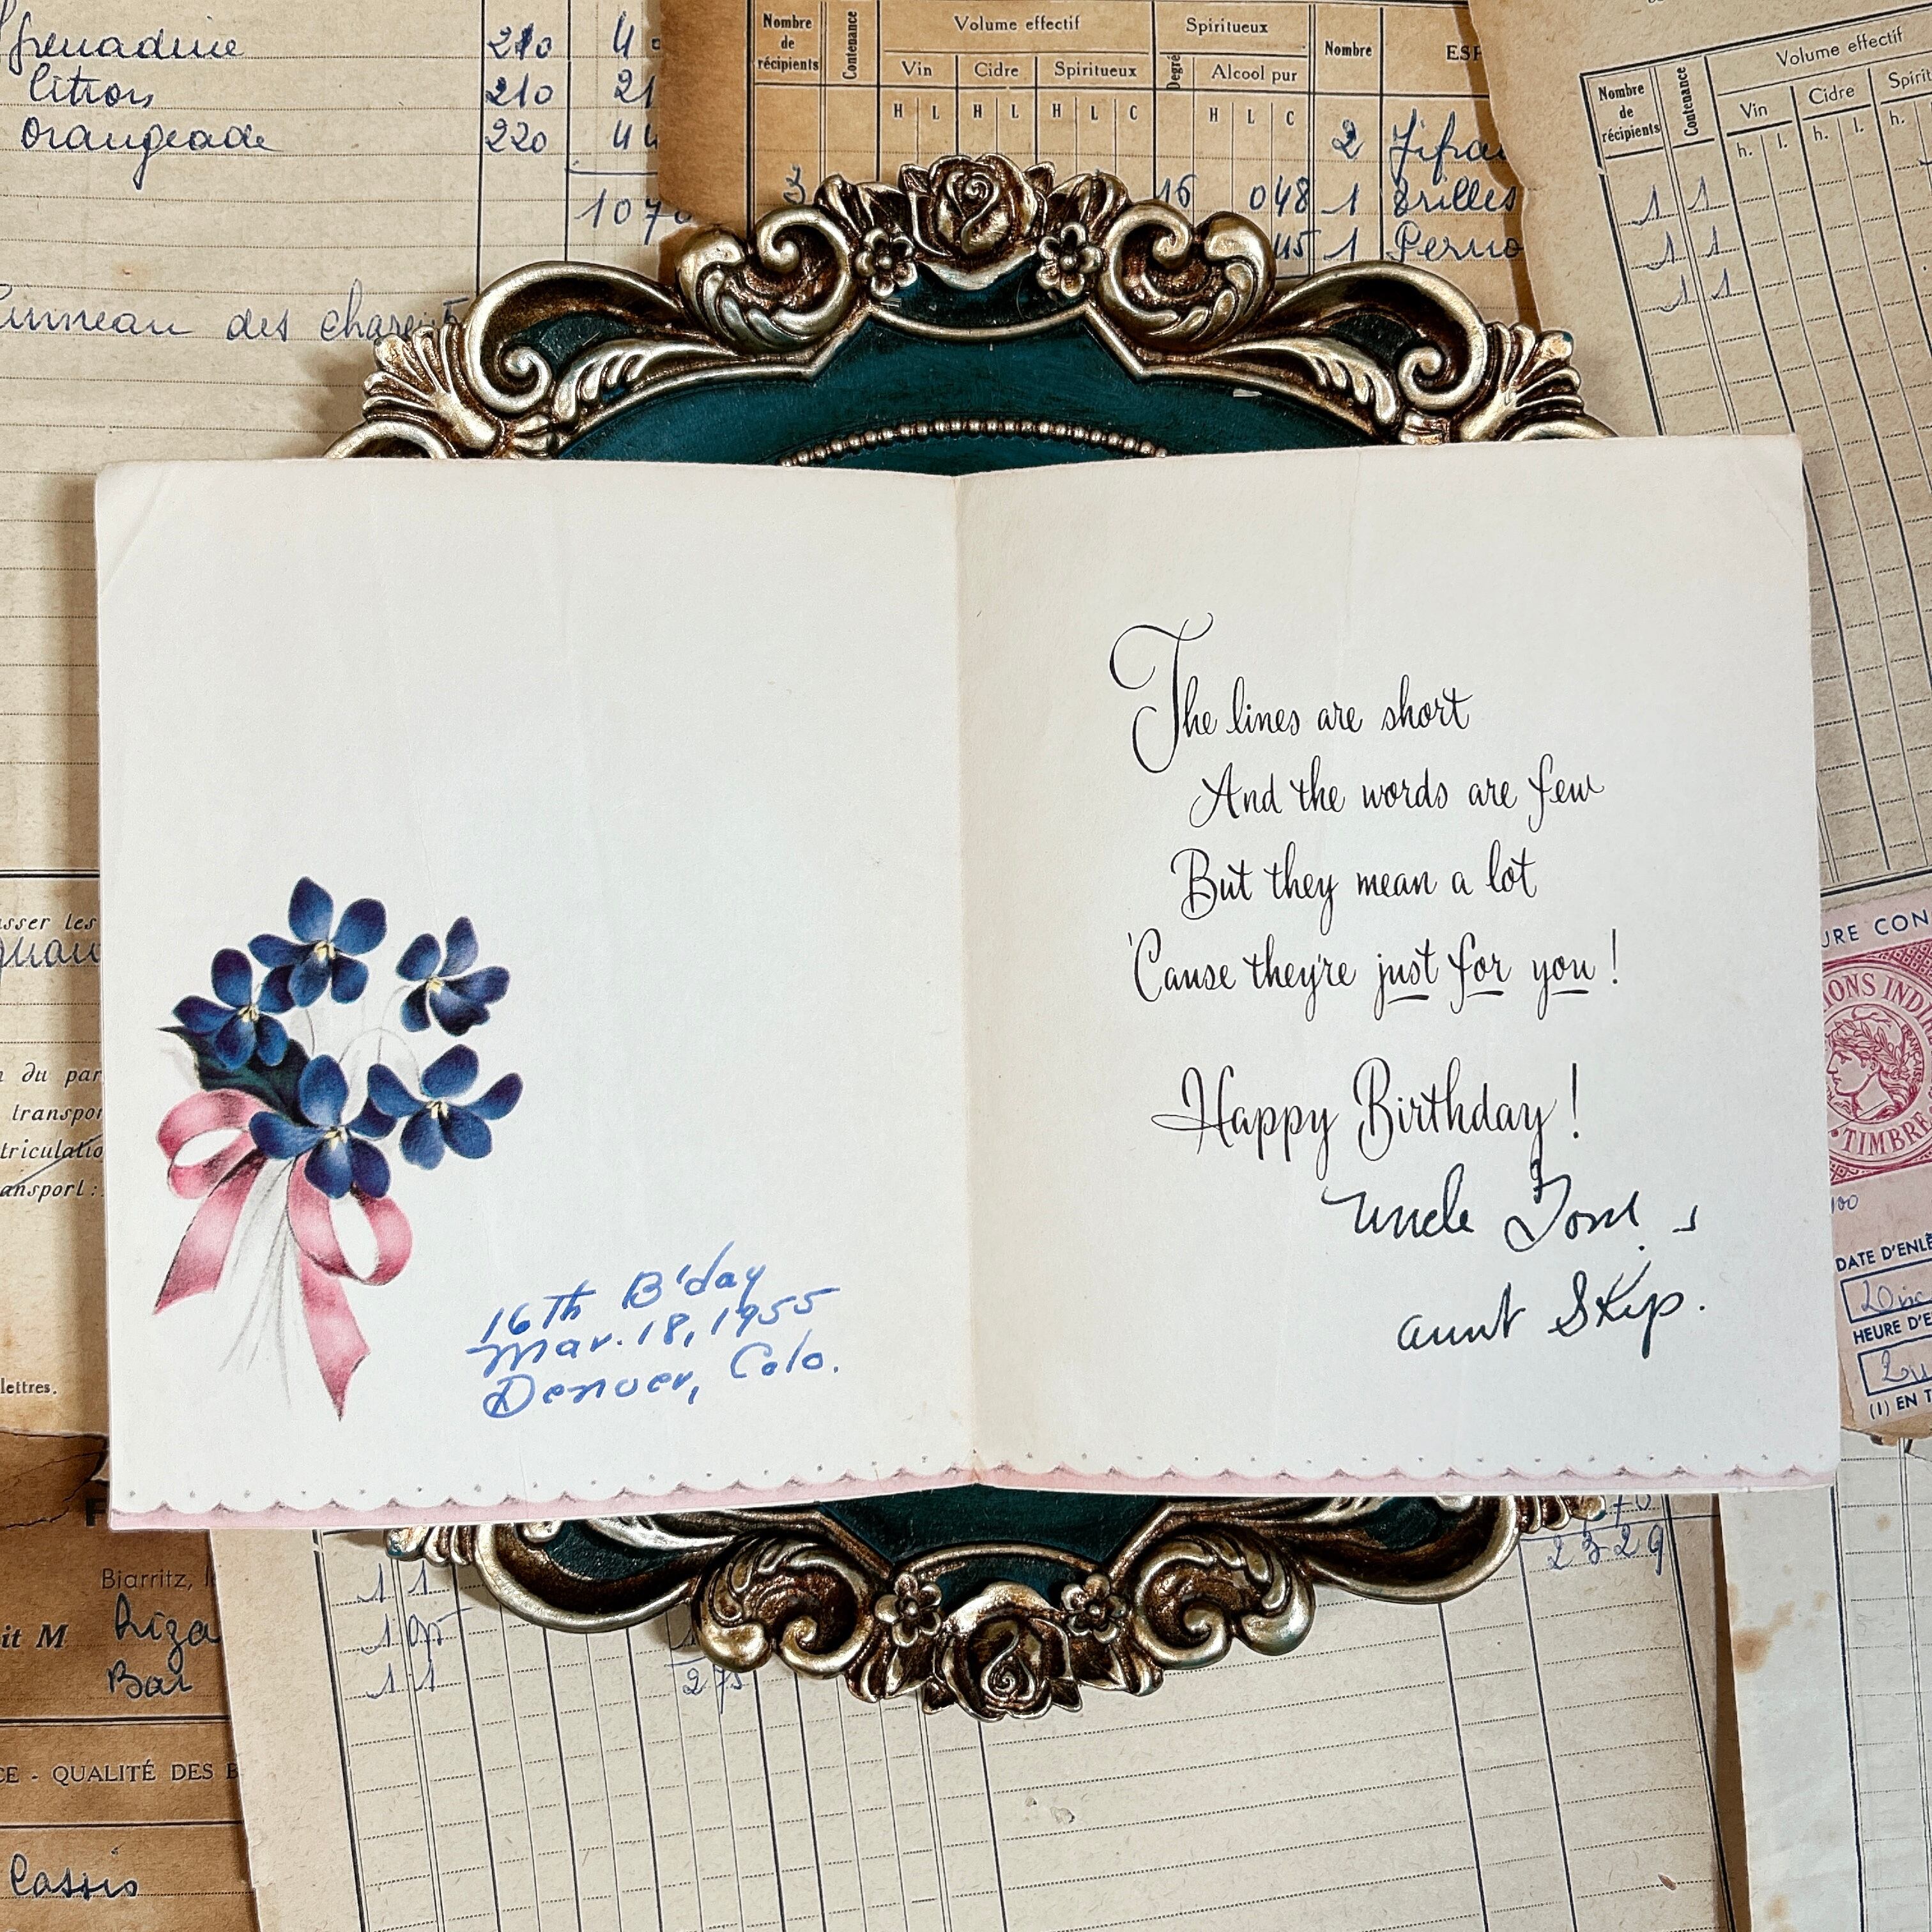 Grenadine 210
Citron 210 21
Orangeade 220 44
107
Pinneau des charent
Nombre de récipients
Contenance
Volume effectif
Spiritueux
Nombre
Vin Cidre Spiritueux
Degré
Alcool pur
H L H L H L C H L C
2
3 16 048 1
45 1
Nombre de récipients
Contenance
Volume effectif
Vin Cidre
h. l. h. l. h.
1 1
1 1
1 1
16Th B'day
Mar. 18, 1955
Denver, Colo.
The lines are short
And the words are few
But they mean a lot
'Cause they're just for you!
Happy Birthday!
Uncle Tom &
Aunt Skip.
sser les
du par
transpor
triculatio
ansport :
lettres.
URE CON
IONS INDI
FRANÇAISE
TIMBRE
100
DATE D'ENLÈ
HEURE D'E
(1) EN T
Biarritz, l
it M
Bar
CE - QUALITÉ DES B
Cassis
1 1
1
1 1
275
2329